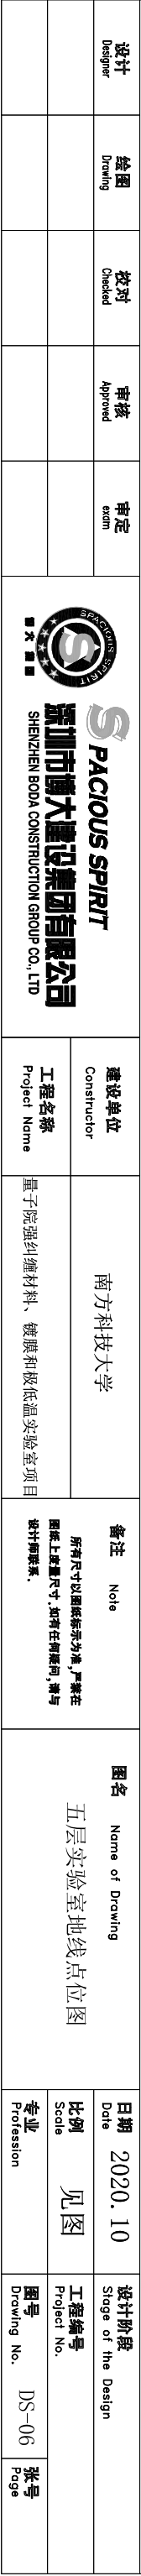 设计
Designer
绘图
Drawing
校对
Checked
审核
Approved
审定
exam
SPACIOUS SPIRIT
S
博大建设
SPACIOUS SPIRIT
深圳市博大建设集团有限公司
SHENZHEN BODA CONSTRUCTION GROUP CO., LTD
建设单位
Constructor
南方科技大学
工程名称
Project Name
量子院强纠缠材料、镀膜和极低温实验室项目
备注 Note
所有尺寸以图纸标示为准,严禁在
图纸上度量尺寸.如有任何疑问,请与
设计师联系.
图名 Name of Drawing
五层实验室地线点位图
日期
Date
2020.10
设计阶段
Stage of the Design
比例
Scale
见图
工程编号
Project No.
专业
Profession
图号
Drawing No.
DS-06
张号
Page